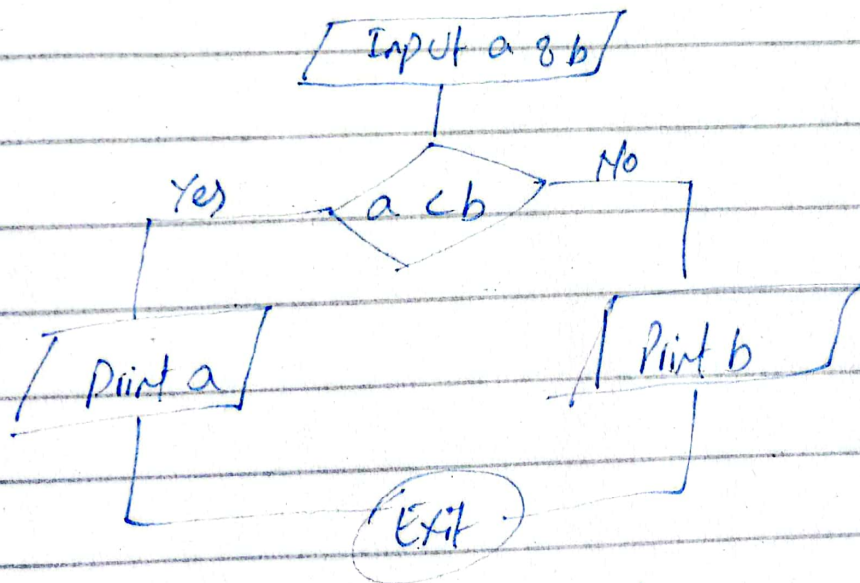 Input a & b
Yes
No
a < b
Print a
Print b
Exit